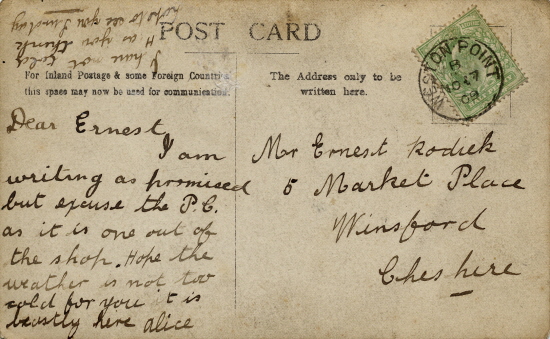 I have not told
H as you thank
hope to see you Sunday
POST CARD
For Inland Postage & some Foreign Countries
this space may now be used for communication.
The Address only to be
written here.
WESTON POINT
Dear Ernest
I am
writing as promised
but excuse the P.C.
as it is one out of
the shop. Hope the
weather is not too
cold for you it is
beastly here Alice
Mr Ernest Rodick
5 Market Place
Winsford
Cheshire